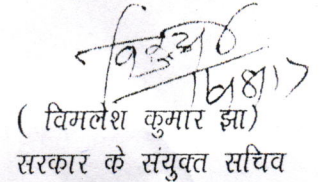 ( विमलेश कुमार झा)
सरकार के संयुक्त सचिव